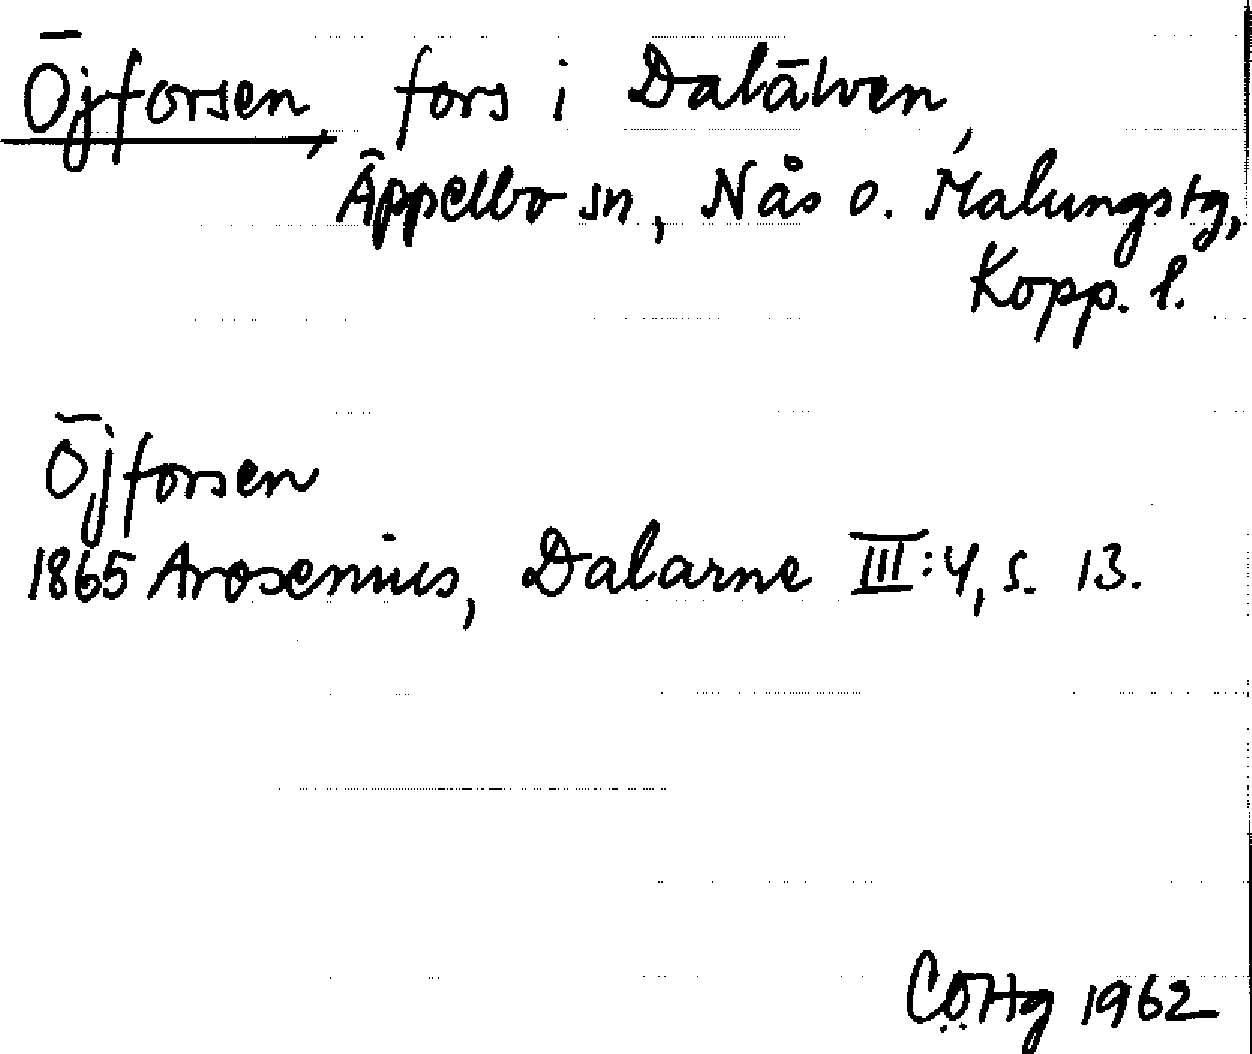 Öjforsen, fors i Dalälven,
Äppelbo sn, Nås o. Malungs tg,
Kopp. l.
Öjforsen
1865 Arosenius, Dalarne III:4, s. 13.
CÖHg 1962